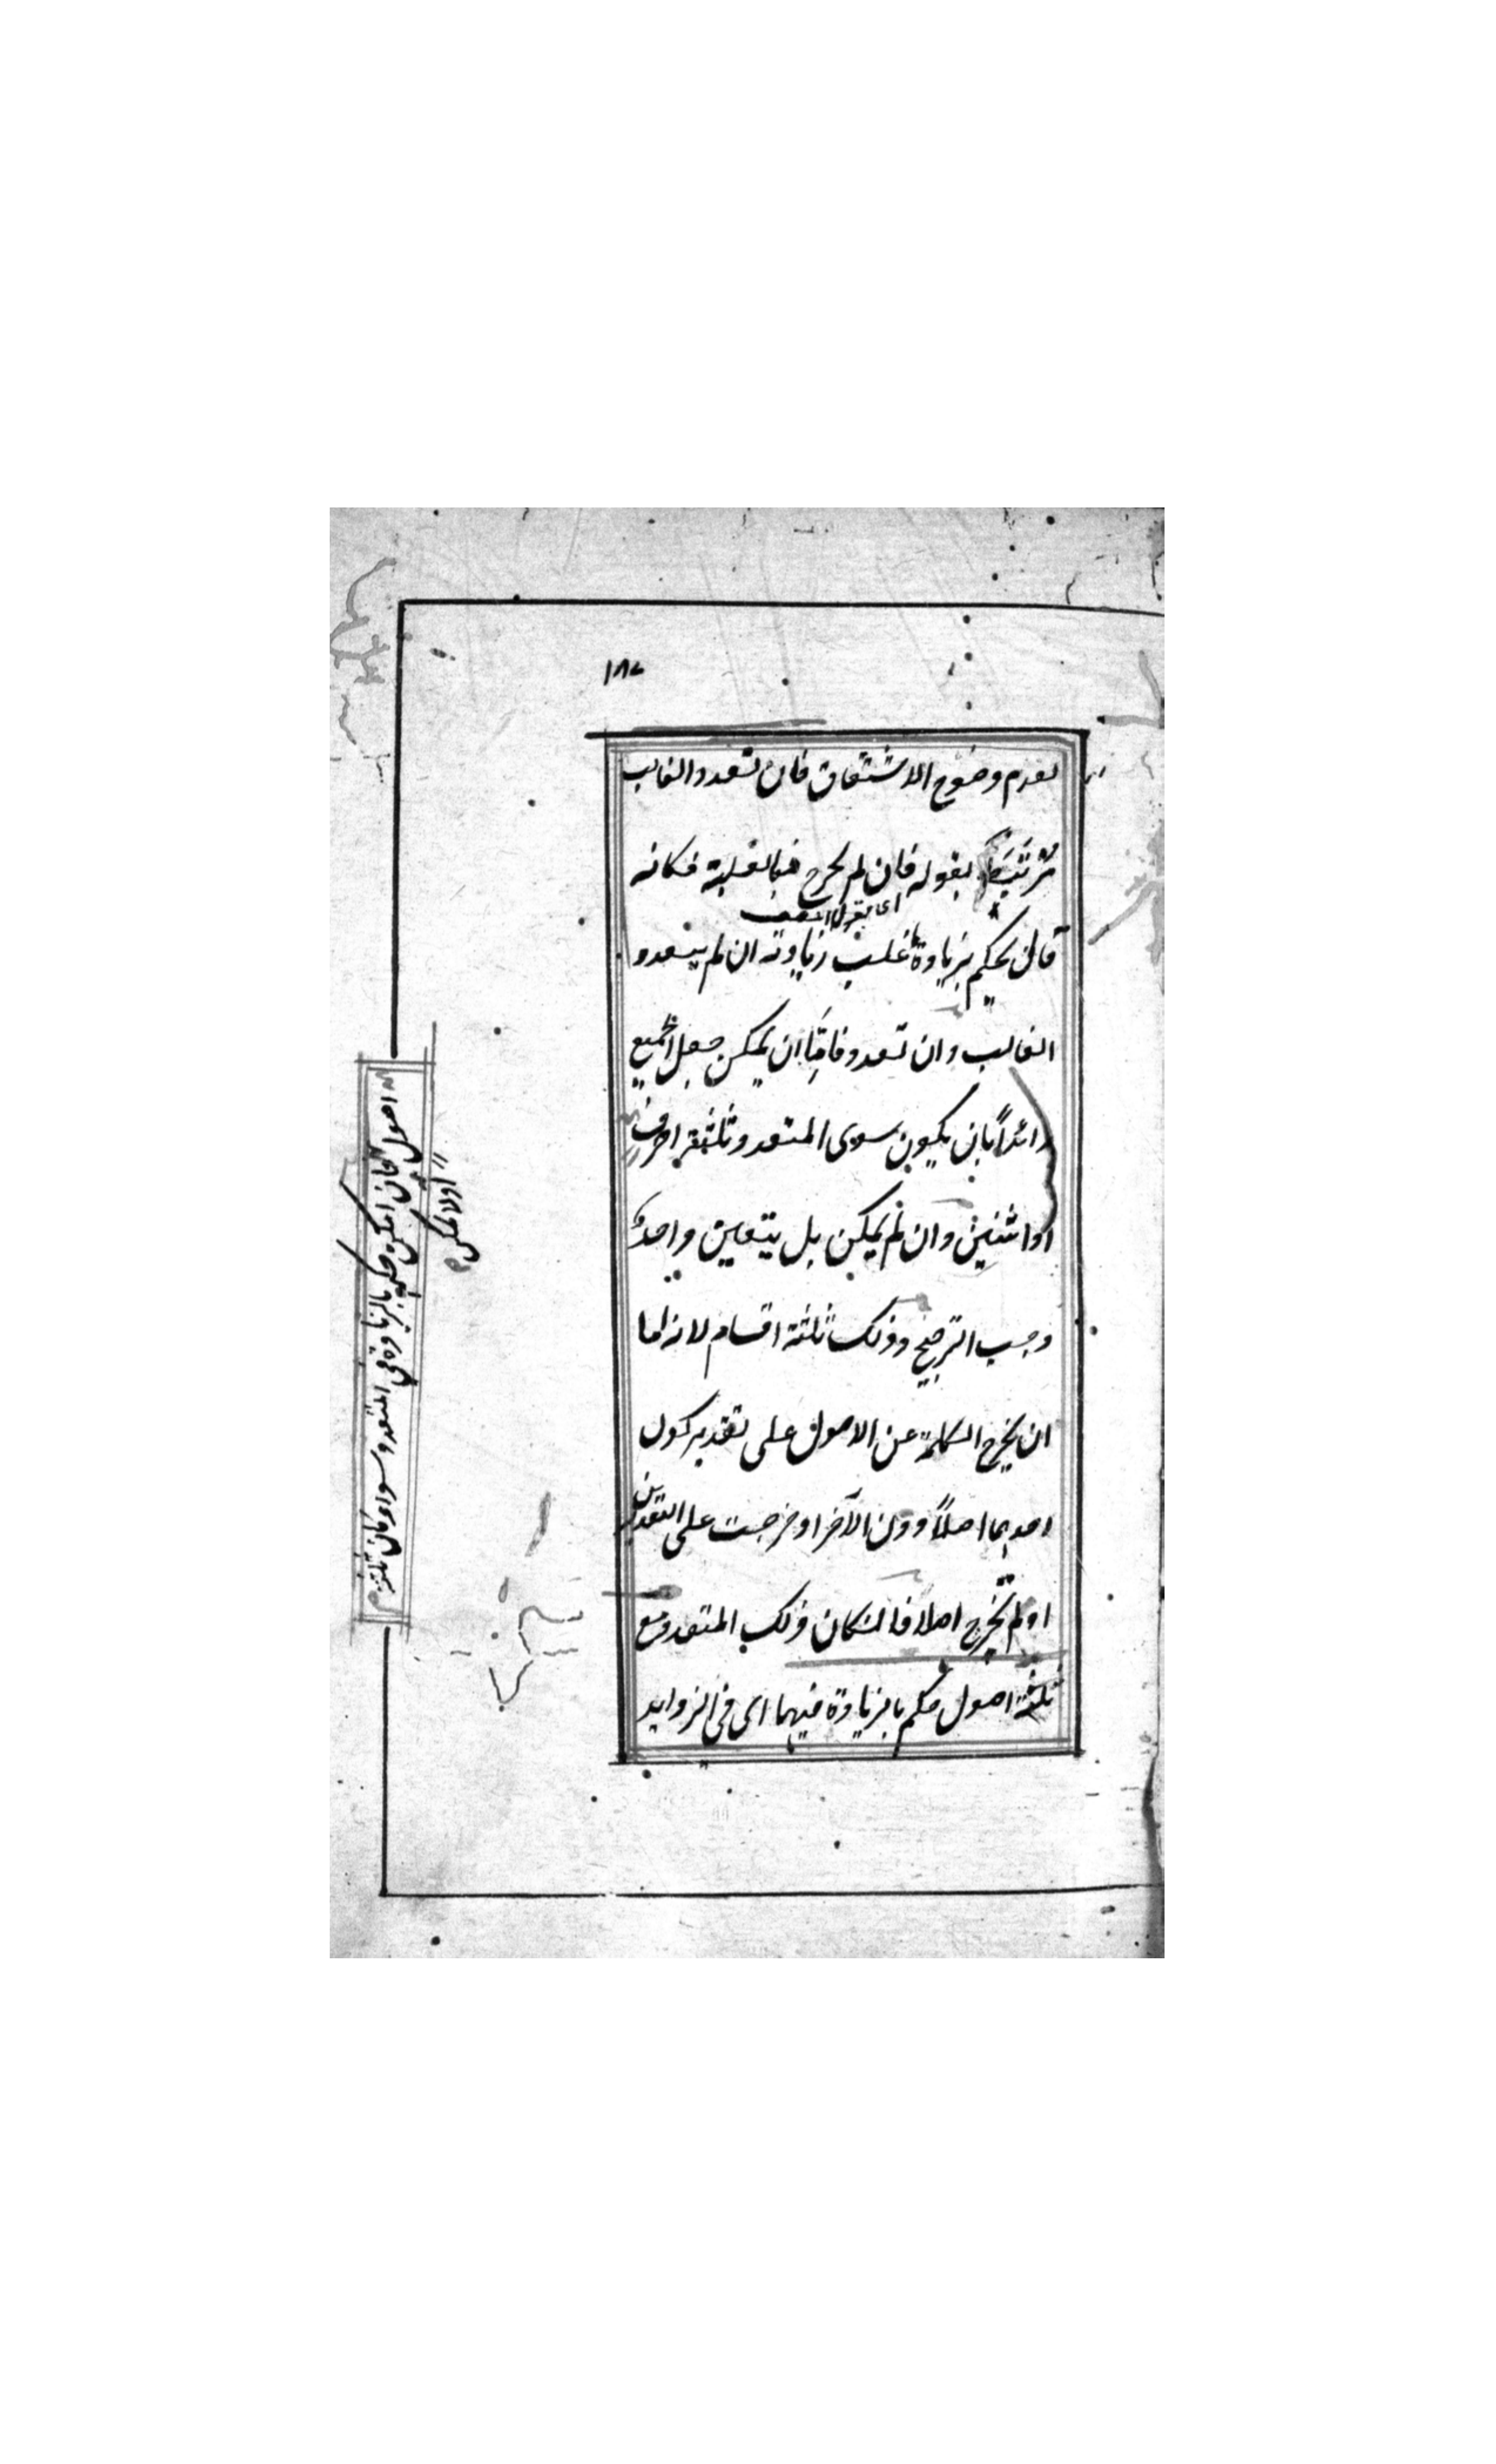 ١٨٧
لعدم وضوح الاشتقاق فان تعدد الغالب
مرتبط بقوله فان لم يخرج فبالغلبة فكانه
قال يحكم بزيادة ما غلب زيادته ان لم يتعدد
الغالب وان تعدد فاما ان يمكن جعل الجميع
زائداً بان يكون سوى المتعدد ثلثة احرف
او اثنين وان لم يمكن بل يتعين واحد
وجب الترجيح وذلك ثلثة اقسام لانه اما
ان يخرج الكلمة عن الاصول على تقدير كون
احدهما اصلاً دون الآخر او خرجت على التقديرين
او لم تخرج اصلا فان كان ذلك المتعدد مع
ثلثة اصول حكم بالزيادة فيهما اى فى الزوايد
اصول فان امكن حكم بالزيادة فى المتعدد سواء كان ثلثة
اولا يمكن